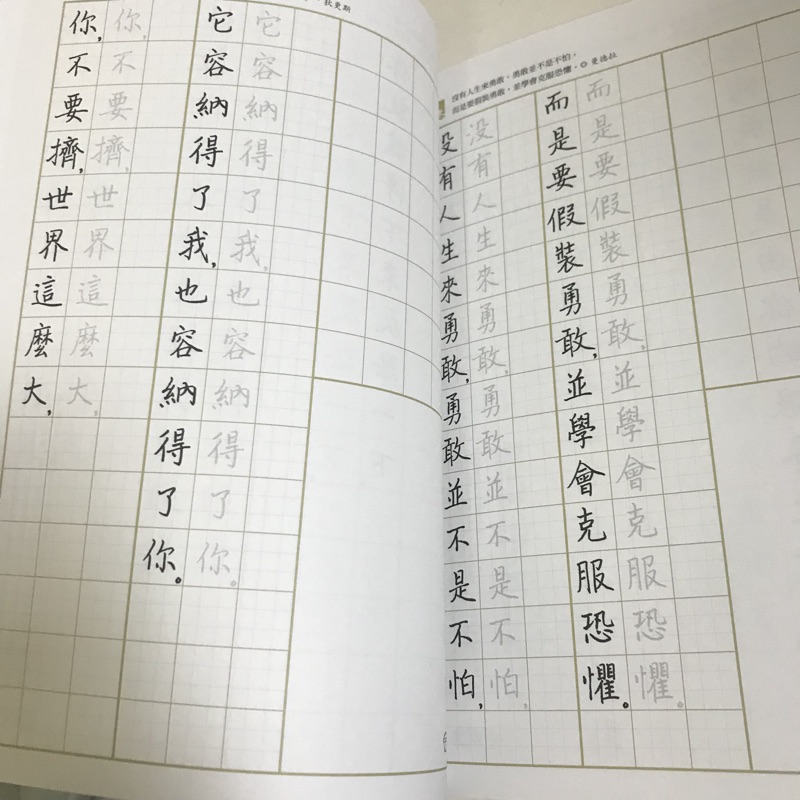 狄更斯
你,不要擠,世界這麼大,
你,不要擠,世界這麼大,
它容納得了我,也容納得了你。
它容納得了我,也容納得了你。
沒有人生來勇敢，勇敢並不是不怕，
而是要假裝勇敢，並學會克服恐懼。◎曼德拉
没有人生來勇敢,勇敢並不是不怕,
没有人生來勇敢,勇敢並不是不怕,
而是要假裝勇敢,並學會克服恐懼。
而是要假裝勇敢,並學會克服恐懼。